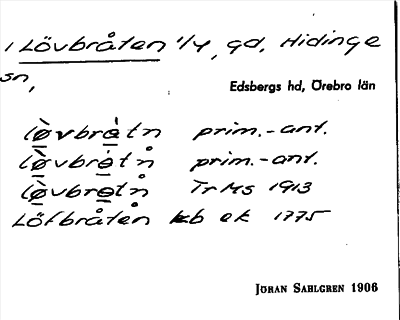 1 Lövbråten 1/4, gd, Hidinge
sn,
Edsbergs hd, Örebro län
lø̀vbrå̀tn prim.-ant.
lø̀vbrɵ́tn̊ prim.-ant.
lø̀vbrɵtn̊ TrMs 1913
Löfbråten kb ek 1775
JÖRAN SAHLGREN 1906